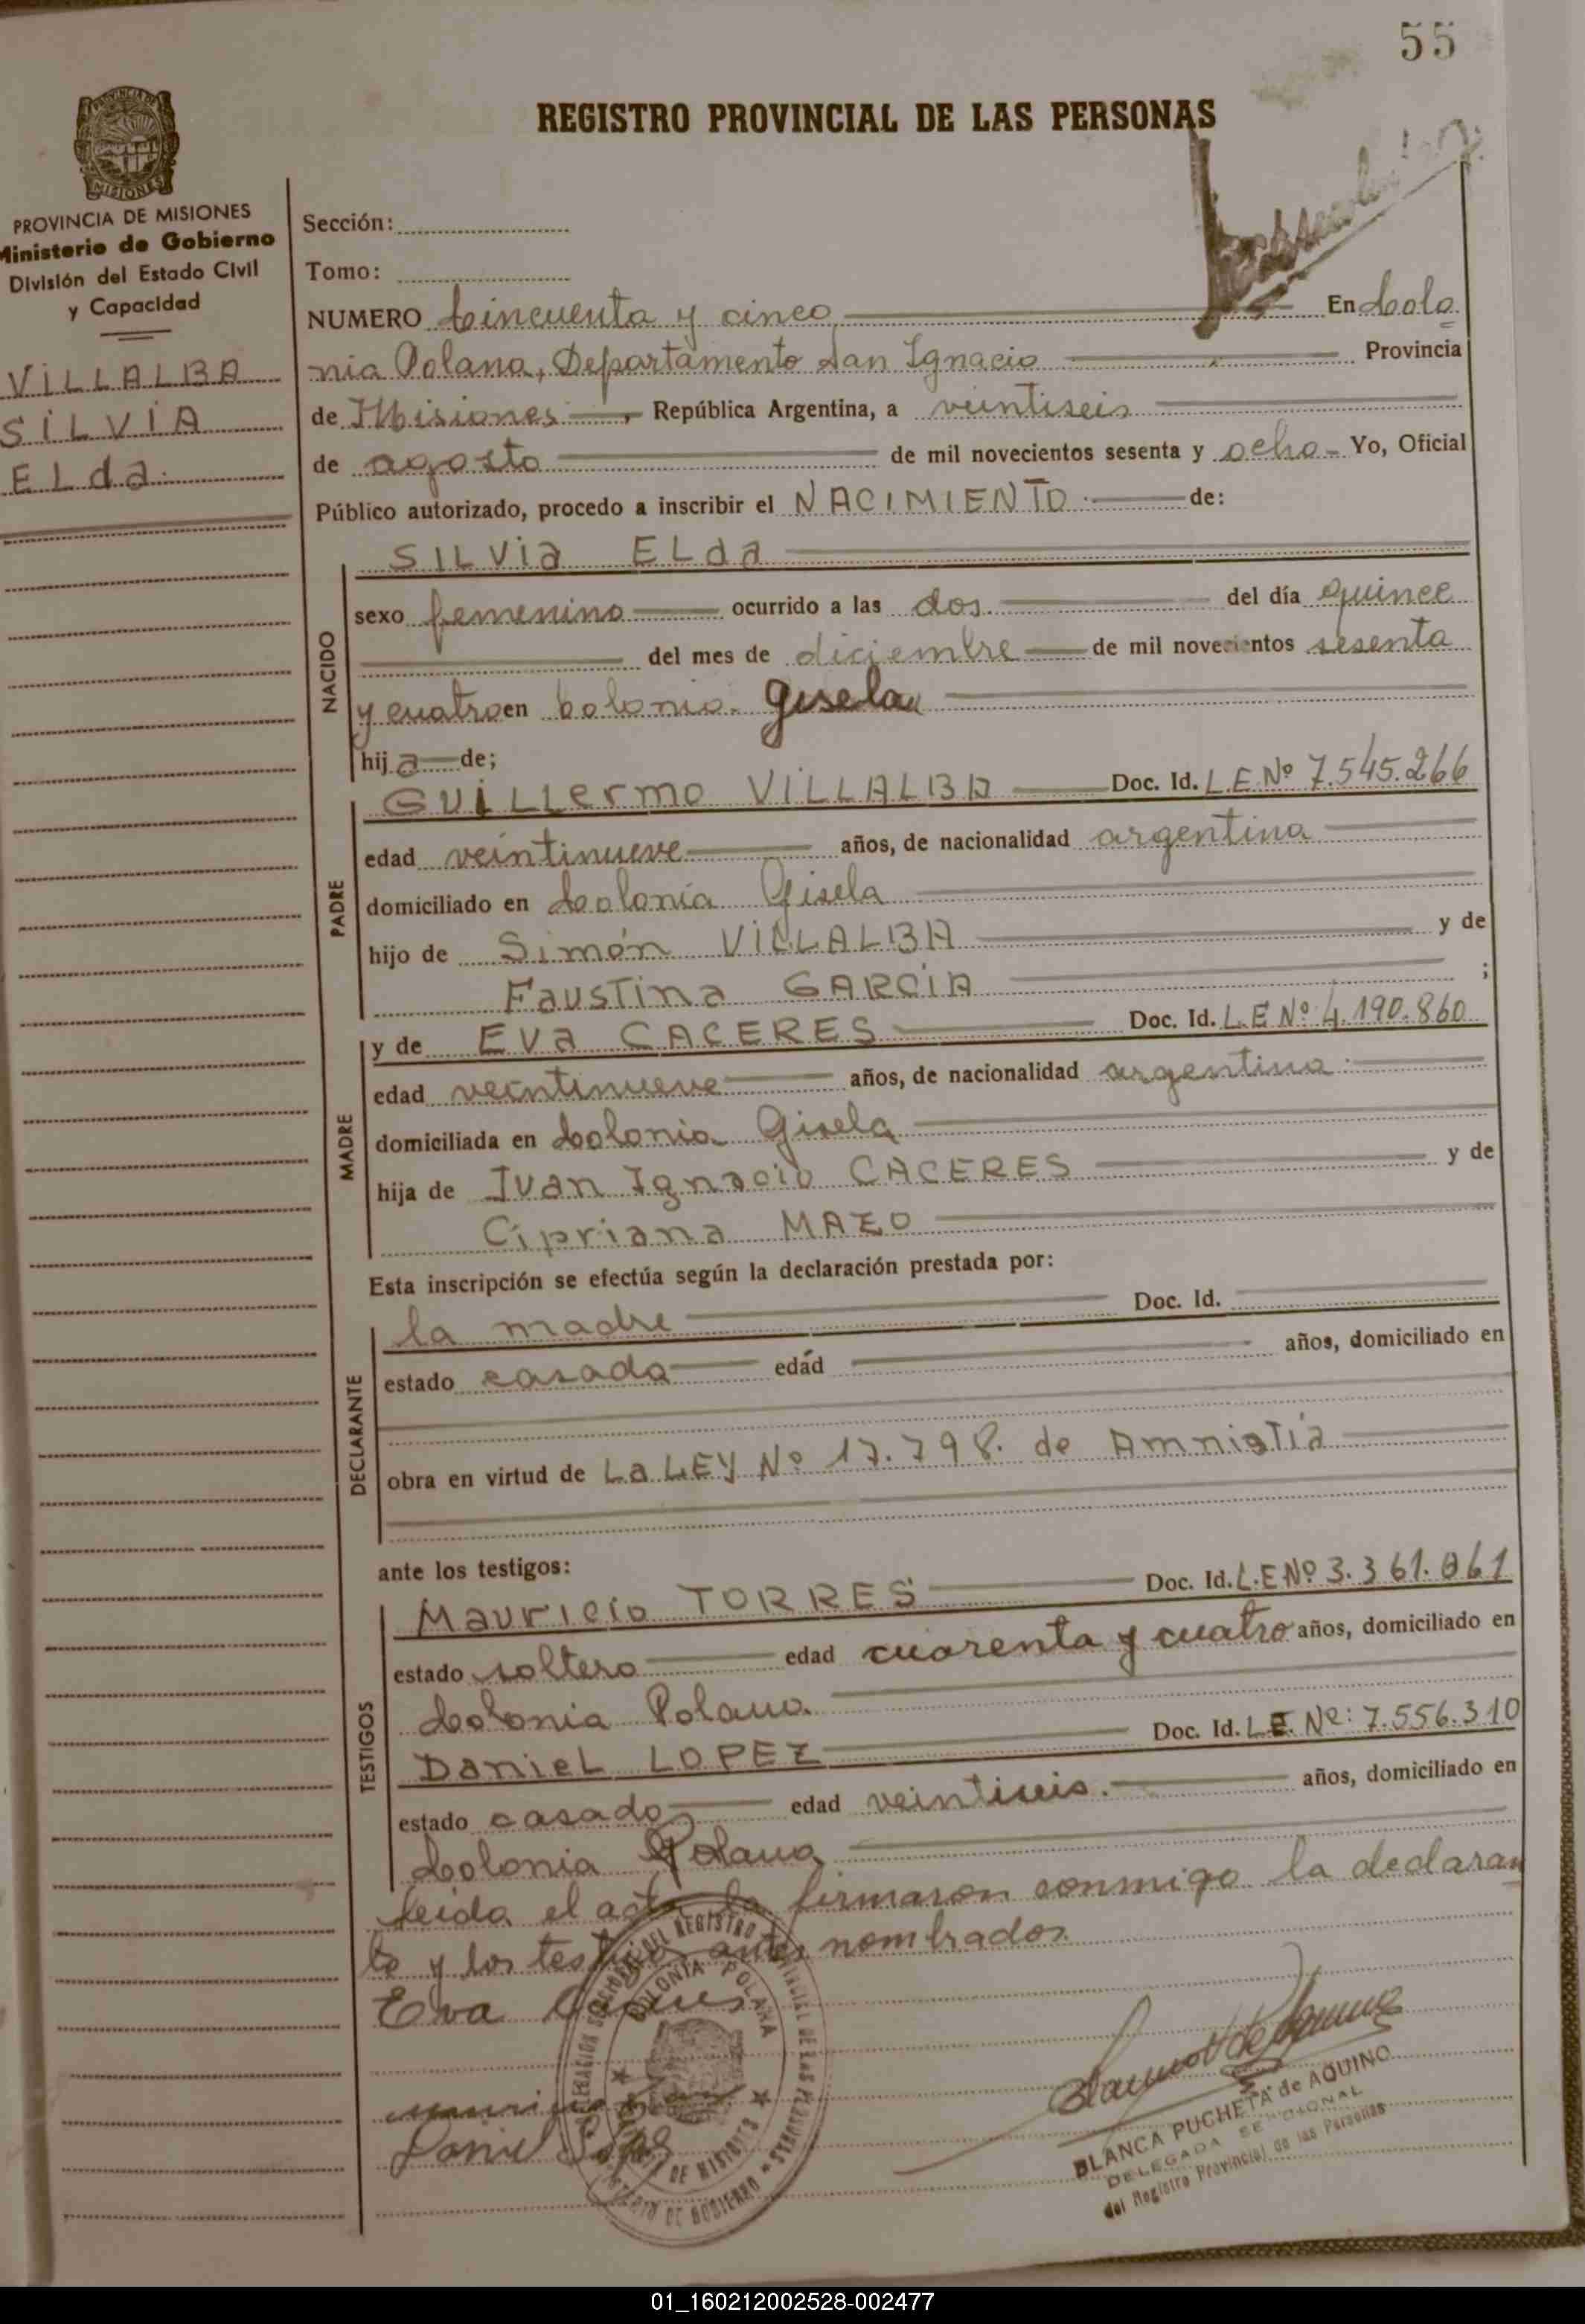 55
REGISTRO PROVINCIAL DE LAS PERSONAS
PROVINCIA DE MISIONES
MISIONES
PROVINCIA DE MISIONES
Ministerio de Gobierno
División del Estado Civil
y Capacidad
VILLALBA
SILVIA
ELda
Sección:
Tomo:
NUMERO Cincuenta y cinco En Colo
nia Polana, Departamento San Ignacio Provincia
de Misiones, República Argentina, a veintiseis
de agosto de mil novecientos sesenta y ocho Yo, Oficial
Público autorizado, procedo a inscribir el NACIMIENTO de:
SILVia ELda
NACIDO
sexo femenino ocurrido a las dos del día quince
del mes de diciembre de mil novecientos sesenta
y cuatro en Colonia Gisela
hij a de;
PADRE
GUILLermo VILLALBA Doc. Id. L.E.Nº 7.545.266
edad veintinueve años, de nacionalidad argentina
domiciliado en Colonia Gisela
hijo de Simón VILLALBA y de
FaUSTina GARCIA ;
MADRE
y de EVa CACERES Doc. Id. L.E Nº 4.190.860
edad veintinueve años, de nacionalidad argentina
domiciliada en Colonia Gisela
hija de Juan Ignacio CACERES y de
Cipriana MAZO
Esta inscripción se efectúa según la declaración prestada por:
DECLARANTE
la madre Doc. Id.
estado casada edad años, domiciliado en
obra en virtud de La LEY Nº 17.798. de Amnistía
ante los testigos:
TESTIGOS
Mauricio TORRES Doc. Id. L.E Nº 3.361.061
estado soltero edad cuarenta y cuatro años, domiciliado en
Colonia Polana
DanieL LOPEZ Doc. Id. L.E. Nº: 7.556.310
estado casado edad veintiseis. años, domiciliado en
Colonia Polana
Leida el acta la firmaron conmigo la declaran
te y los testigos antes nombrados
Eva Caceres
Daniel Lopez
COLONIA POLANA
BLANCA PUCHETA de AQUINO
DELEGADA SECCIONAL
del Registro Provincial de las Personas
01_160212002528-002477